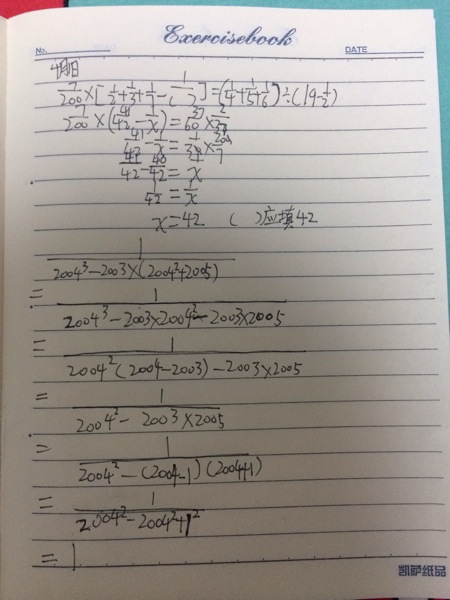 Exercisebook
No.
DATE
4月1日
7/200×[1/2+1/3+1/7-1/( )]=(1/4+1/5+1/6)÷(19-1/2)
7/200×(41/42-1/x)=37/60×2/37
41/42-1/x=1/30×200/7
41/42-40/42=1/x
1/42=1/x
x=42 ( )应填42
1/(2004³-2003×(2004²+2005))
=1/(2004³-2003×2004²-2003×2005)
=1/(2004²(2004-2003)-2003×2005)
=1/(2004²-2003×2005)
=1/(2004²-(2004-1)(2004+1))
=1/(2004²-2004²+1²)
=1
凯萨纸品